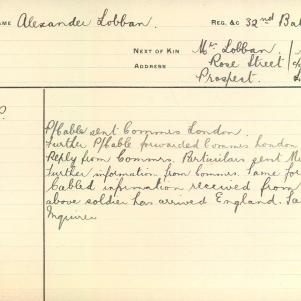 NAME Alexander Lobban. REG. &C 32nd Bat
NEXT OF KIN Mr. Lobban.
ADDRESS Rose Street
Prospect.
P/Cable sent Commrs London.
Further P/Cable forwarded Commrs London
Reply from Commrs. Particulars sent
Further information from Commrs. Same for
Cabled information received from
above soldier has arrived England.
Inquirer